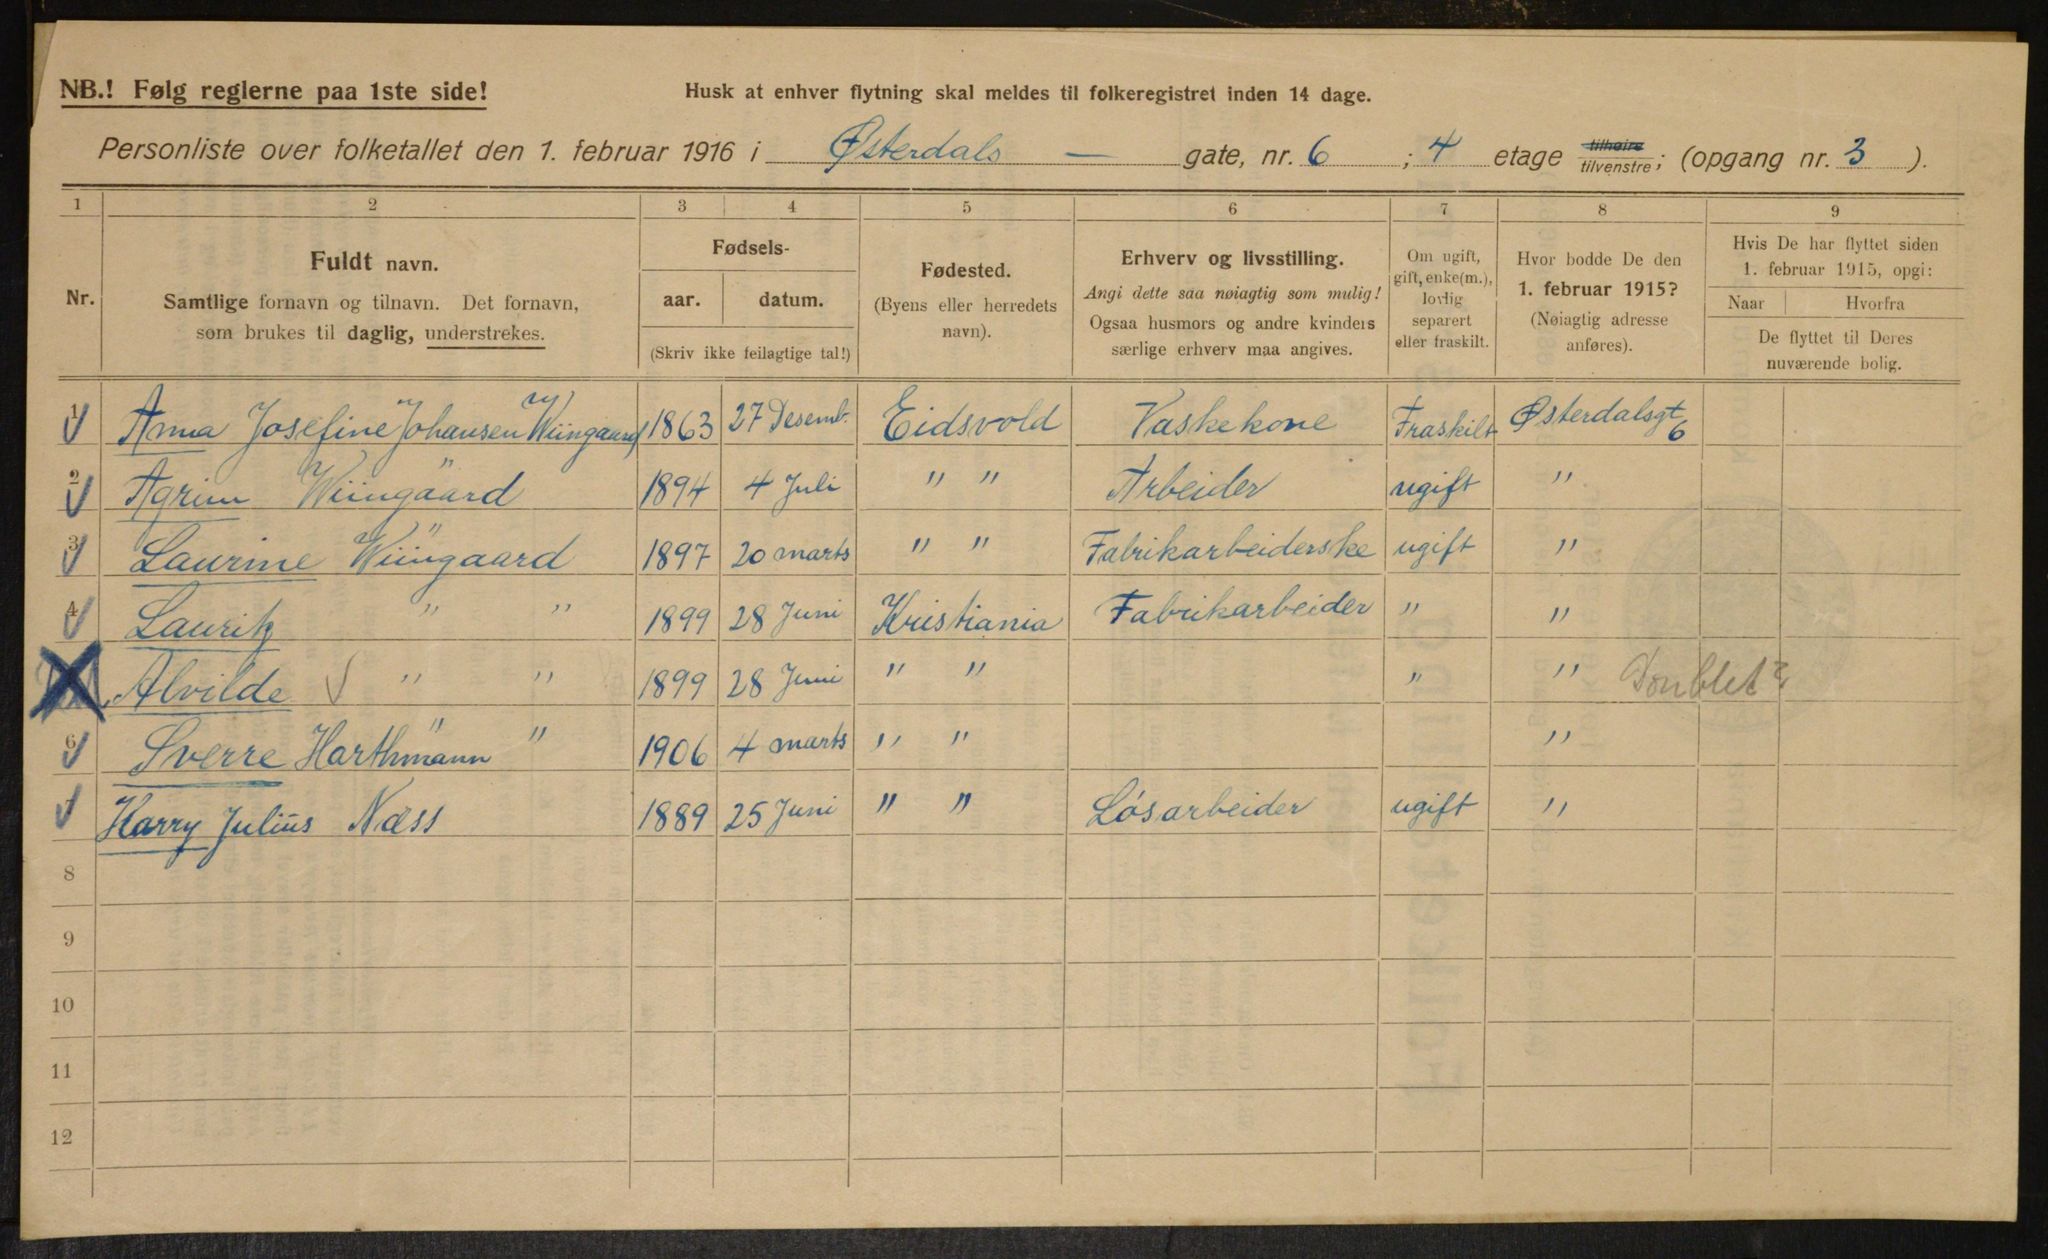 NB.! Følg reglerne paa 1ste side!
Husk at enhver flytning skal meldes til folkeregistret inden 14 dage.
Personliste over folketallet den 1. februar 1916 i Østerdals — gate, nr. 6 ; 4 etage tilhøire tilvenstre; (opgang nr. 3 ).
1 2 3 4 5 6 7 8 9
Nr.
Fuldt navn.
Samtlige fornavn og tilnavn. Det fornavn,
som brukes til daglig, understrekes.
Fødsels-
aar. datum.
(Skriv ikke feilagtige tal!)
Fødested.
(Byens eller herredets
navn).
Erhverv og livsstilling.
Angi dette saa nøiagtig som mulig!
Ogsaa husmors og andre kvinders
særlige erhverv maa angives.
Om ugift,
gift, enke(m.),
lovlig
separert
eller fraskilt.
Hvor bodde De den
1. februar 1915?
(Nøiagtig adresse
anføres).
Hvis De har flyttet siden
1. februar 1915, opgi:
Naar Hvorfra
De flyttet til Deres
nuværende bolig.
1 Anna Josefine Johansen Wiingaard 1863 27 Desemb. Eidsvold Vaskekone Fraskilt Østerdalsgt 6
2 Agrim Wiingaard 1894 4 Juli " " Arbeider ugift "
3 Laurine Wiingaard 1897 20 marts " " Fabrikarbeiderske ugift "
4 Lauritz " " 1899 28 Juni Kristiania Fabrikarbeider " "
Alvilde " " 1899 28 Juni " " " " Doublet?
6 Sverre Harthmann " 1906 4 marts " " "
7 Harry Julius Næss 1889 25 Juni " " Løsarbeider ugift "
8
9
10
11
12